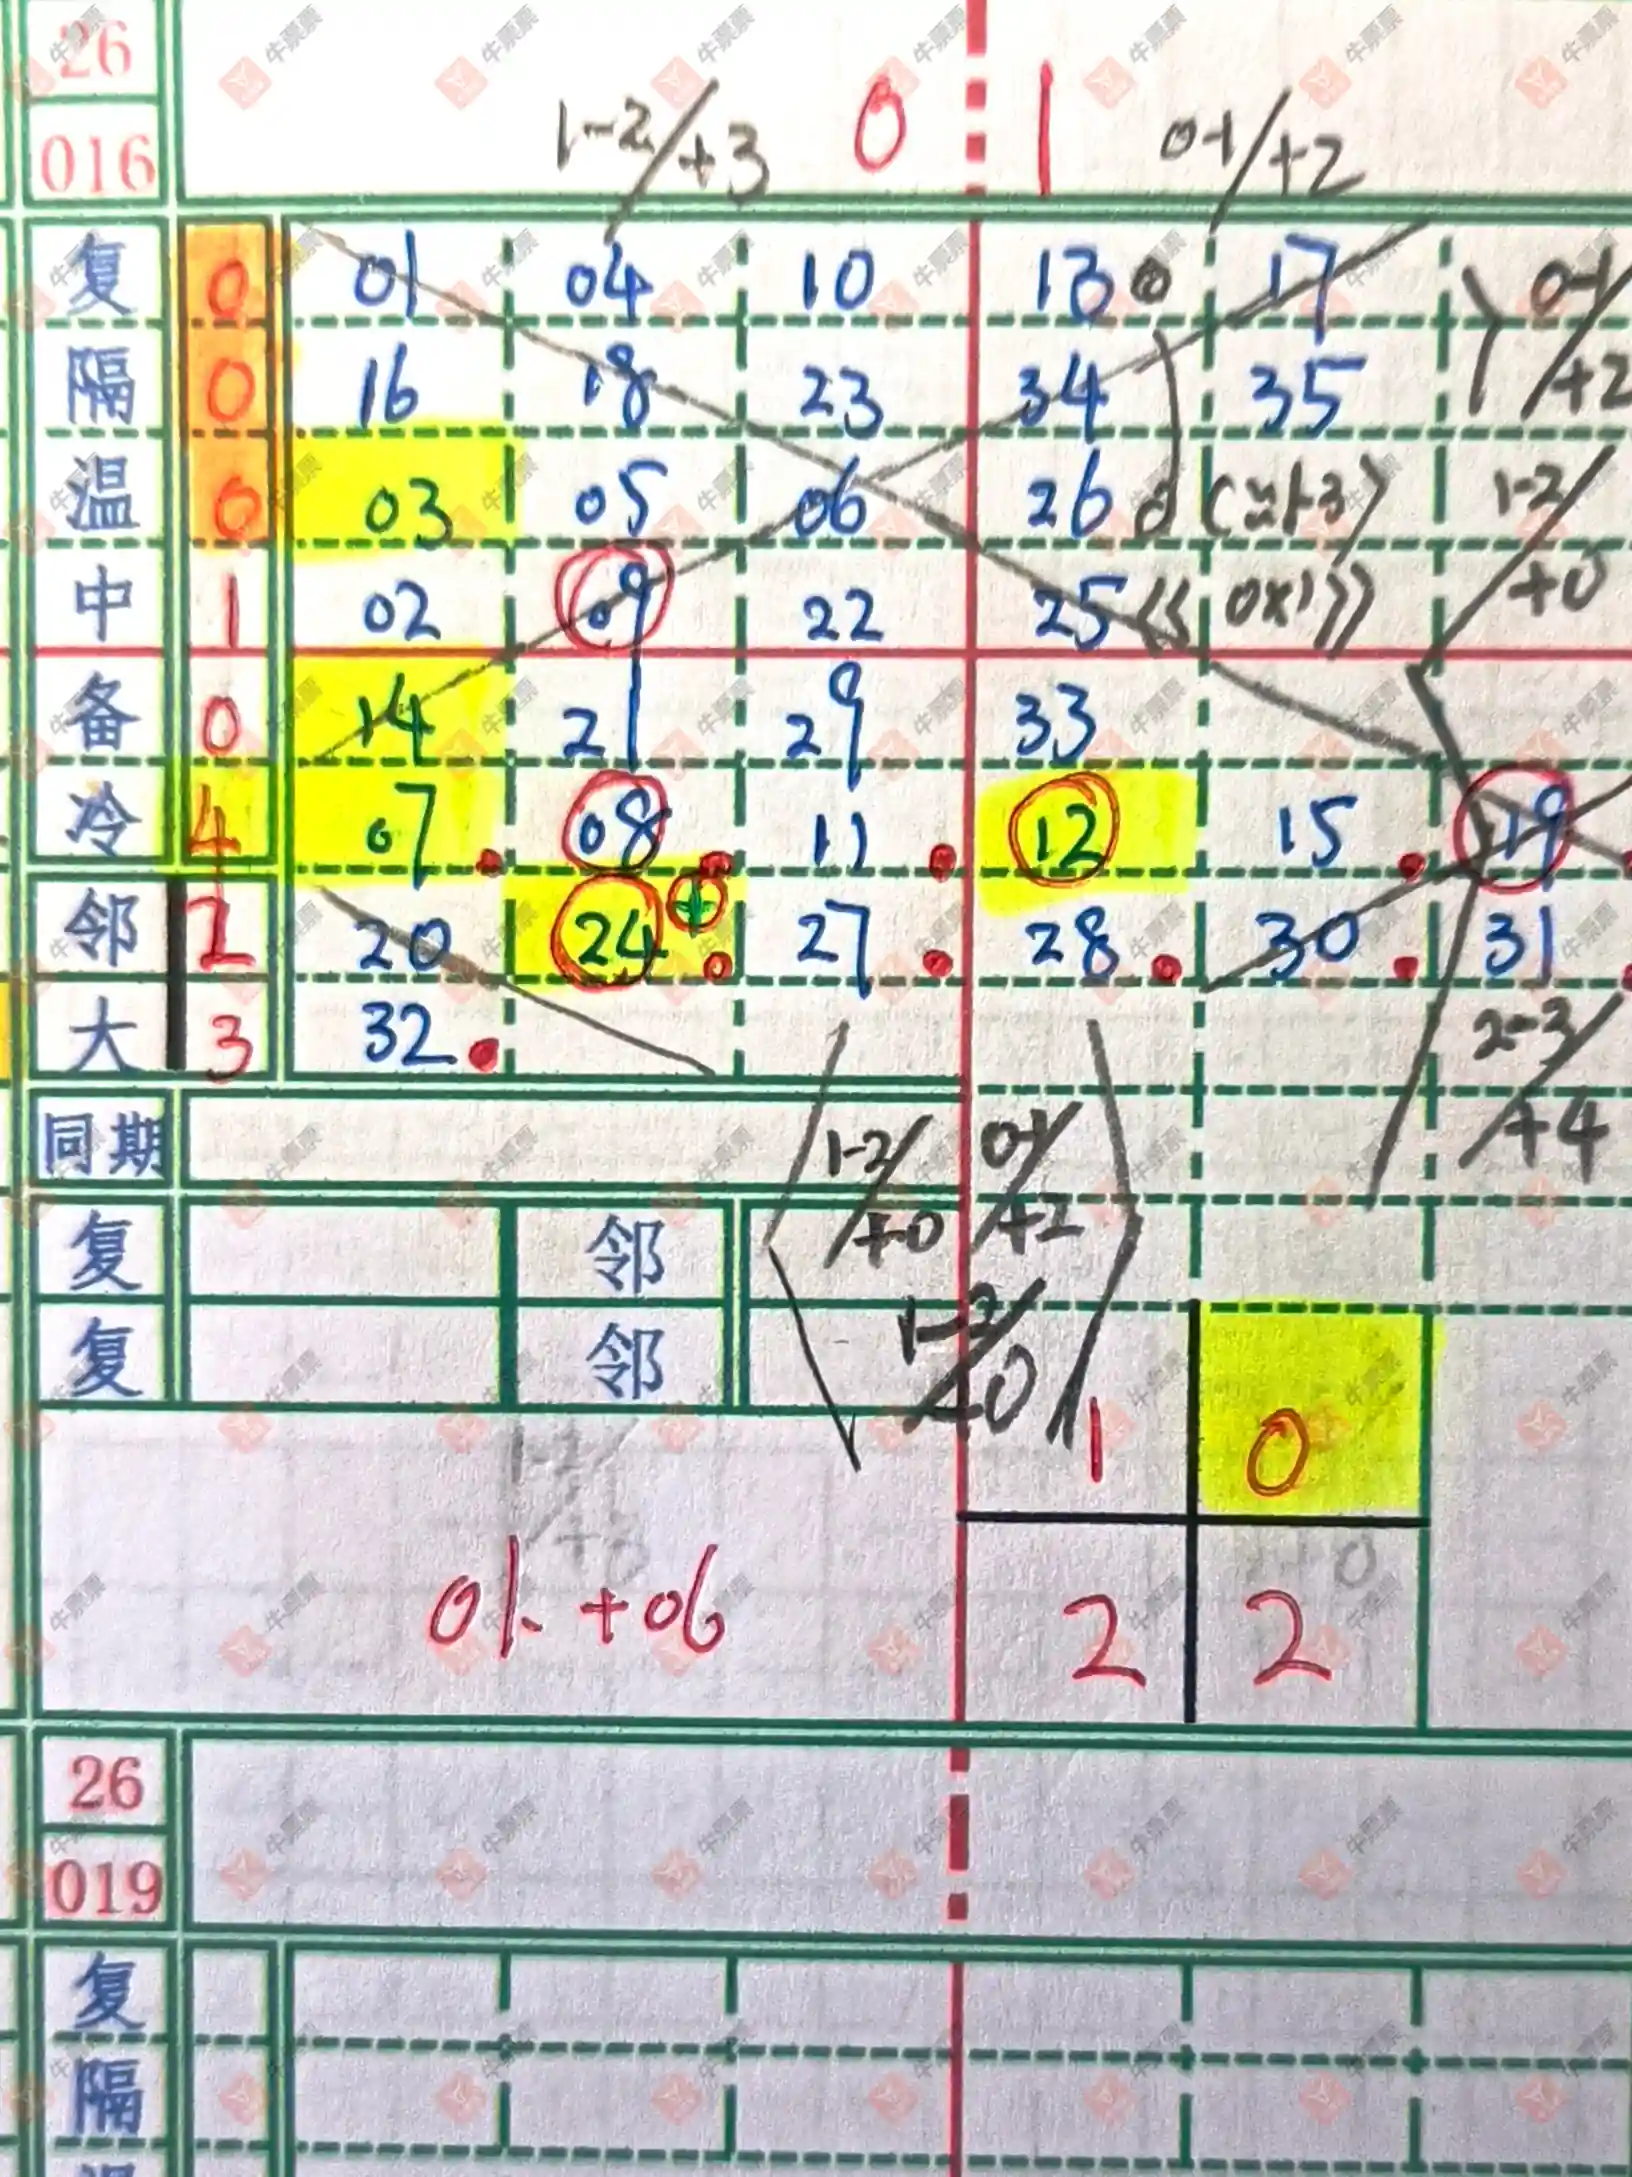 26
016 1-2/+3 0 1 0-1/+2
复 0 01 04 10 13 0 17 0-1/+2
隔 0 16 18 23 34 35
温 0 03 05 06 26 0 1-2/+0
中 1 02 09 22 25 《《 0X1》》
备 0 14 21 29 33
冷 4 07 08 11 12 15 19
邻 20 24 27 28 30 31
大 3 32 2-3/+4
同期 1-2/+0 0-1/+2
复 邻
复 邻 1-2/
1 0
1-2/
+0
2 2
26
019
复
隔
牛票票